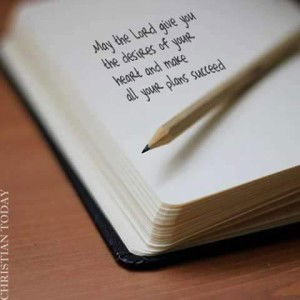 May the Lord give you
the desires of your
heart and make
all your plans succeed
CHRISTIAN TODAY